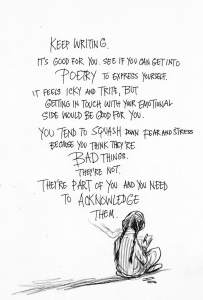 KEEP WRITING.
IT'S GOOD FOR YOU. SEE IF YOU CAN GET INTO
POETRY TO EXPRESS YOURSELF.
IT FEELS ICKY AND TRITE, BUT
GETTING IN TOUCH WITH YOUR EMOTIONAL
SIDE WOULD BE GOOD FOR YOU.
YOU TEND TO SQUASH DOWN FEAR AND STRESS
BECAUSE YOU THINK THEY'RE
BAD THINGS.
THEY'RE NOT.
THEY'RE PART OF YOU AND YOU NEED
TO ACKNOWLEDGE
THEM.